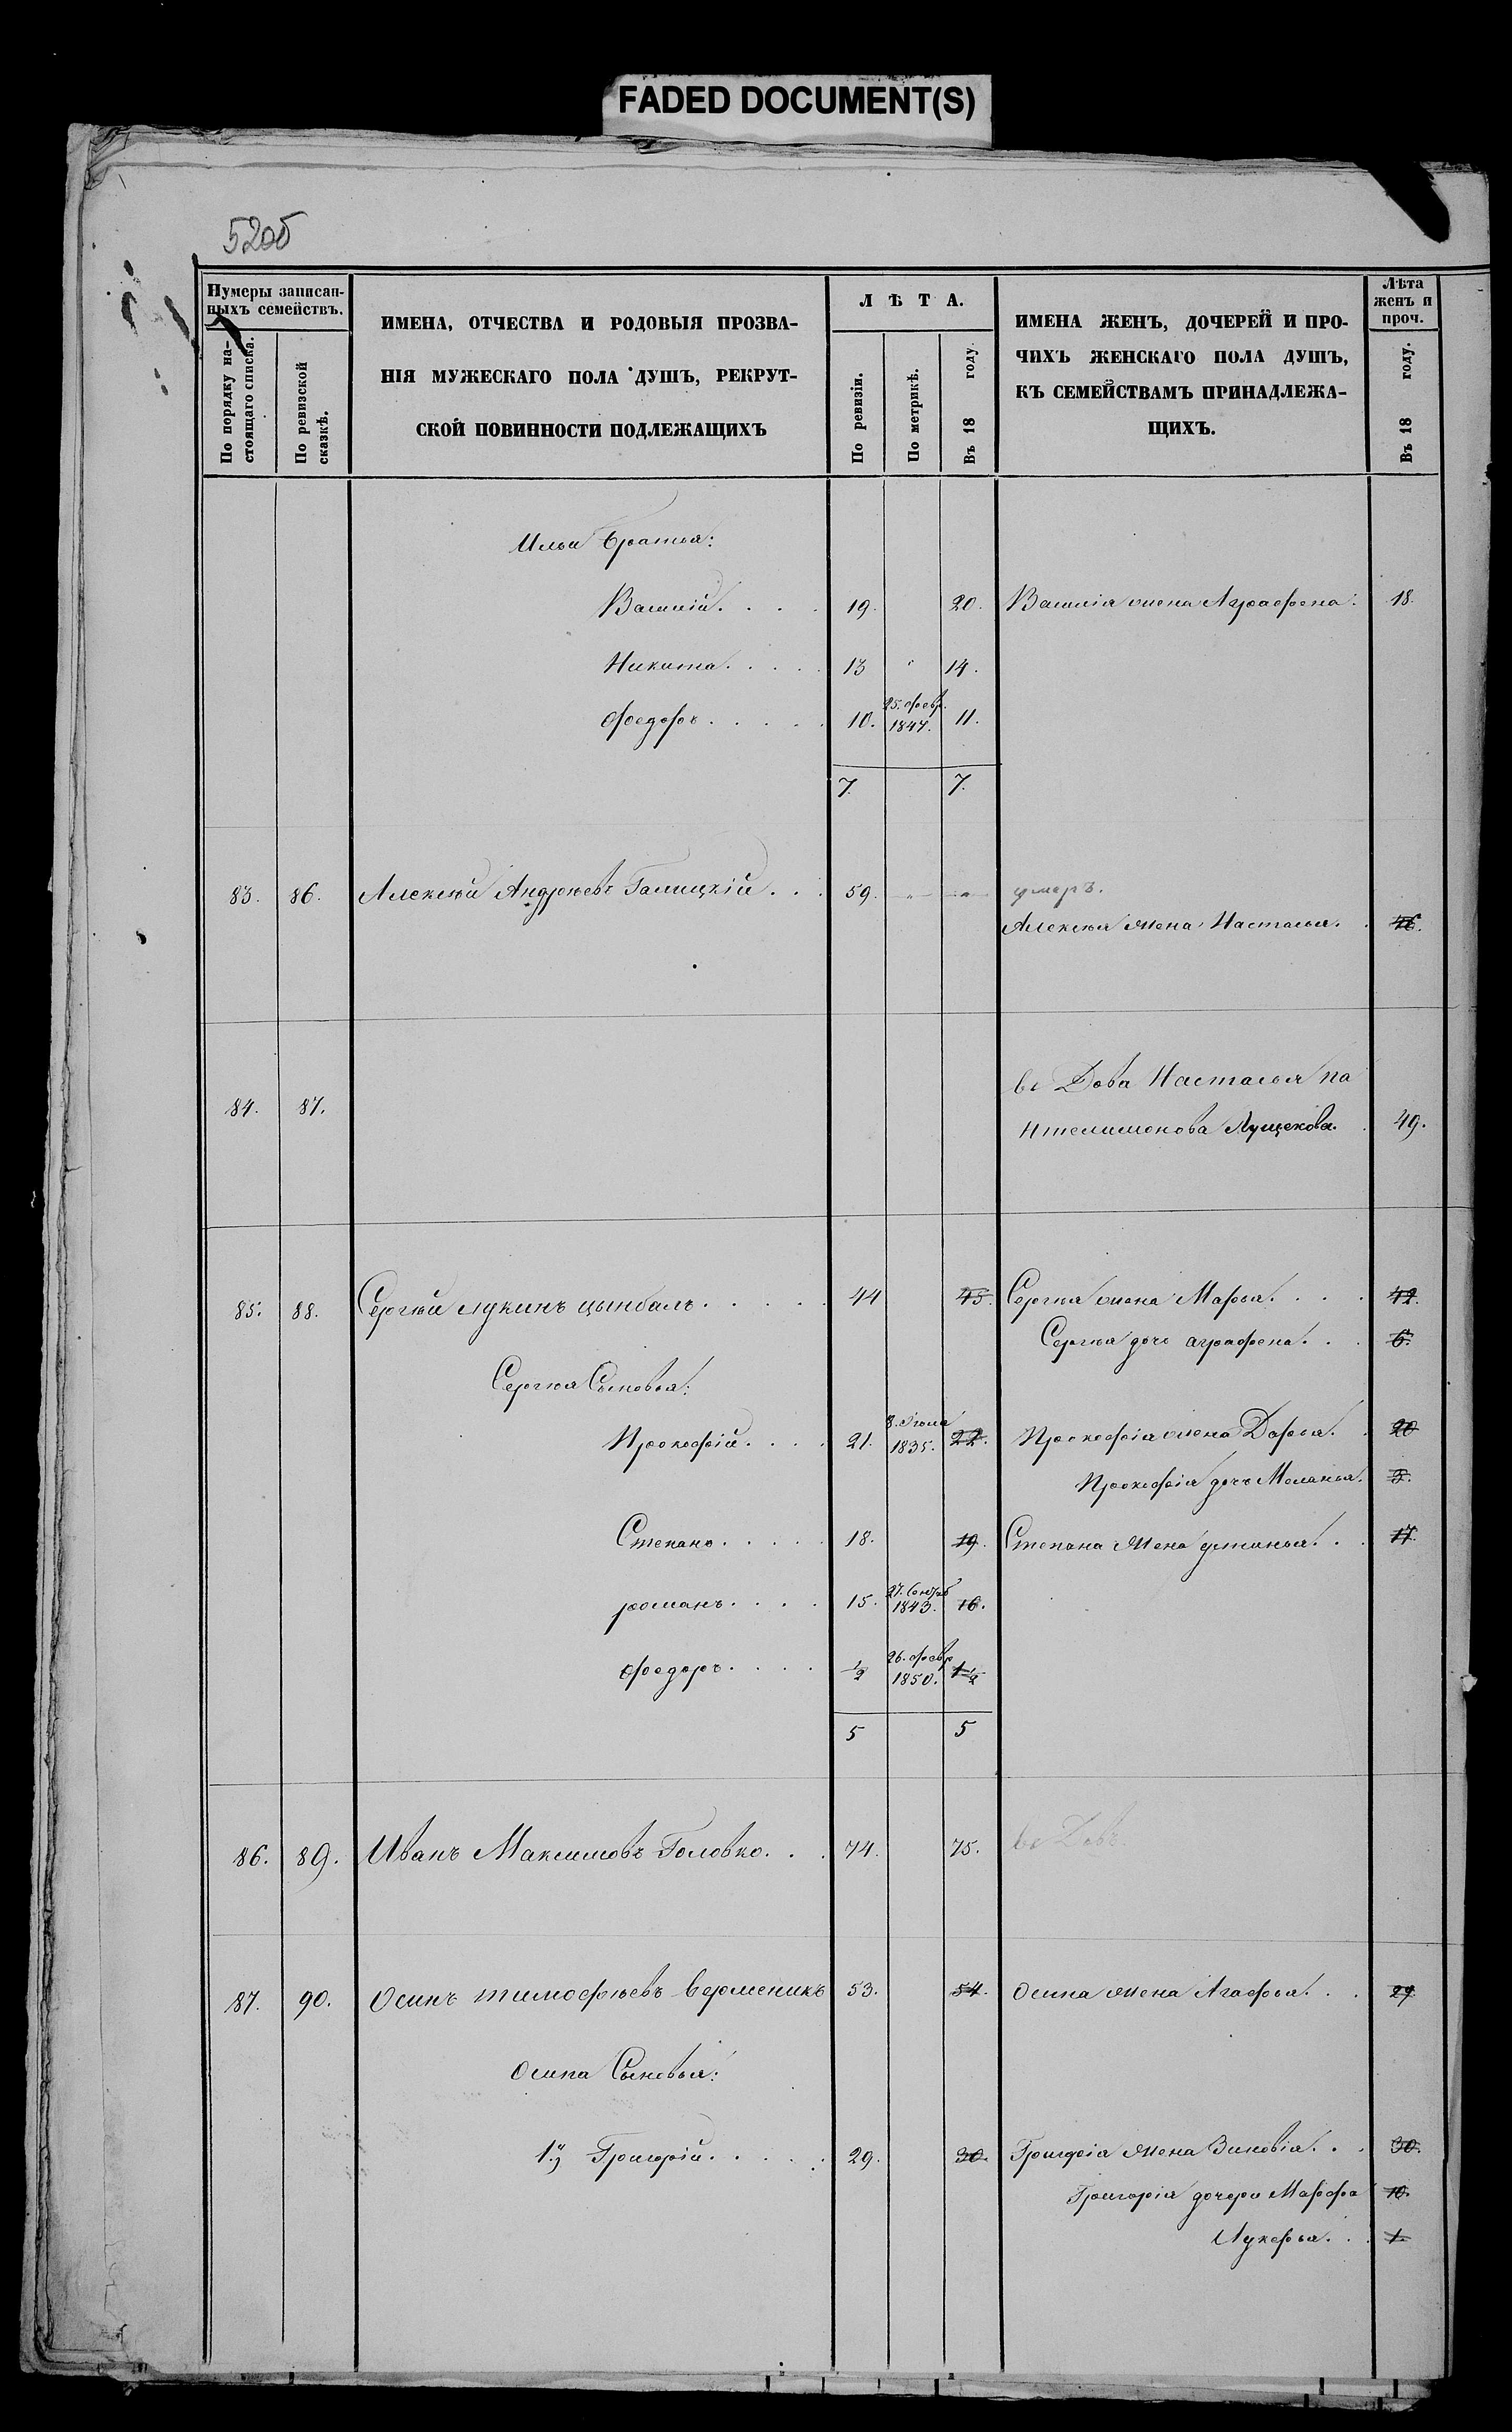 FADED DOCUMENT(S)
52об
Нумеры записан-
ныхъ семействъ.
По порядку на-
стоящаго списка.
По ревизской
сказкѣ.
ИМЕНА, ОТЧЕСТВА И РОДОВЫЯ ПРОЗВА-
НІЯ МУЖЕСКАГО ПОЛА ДУШЪ, РЕКРУТ-
СКОЙ ПОВИННОСТИ ПОДЛЕЖАЩИХЪ
ЛѢТА.
По ревизіи.
По метрикѣ.
Въ 18 году.
ИМЕНА ЖЕНЪ, ДОЧЕРЕЙ И ПРО-
ЧИХЪ ЖЕНСКАГО ПОЛА ДУШЪ,
КЪ СЕМЕЙСТВАМЪ ПРИНАДЛЕЖА-
ЩИХЪ.
Лѣта
женъ и
проч.
Въ 18 году.
Ильи братья:
Василій 19. 20. Василія жена Аграфена. 18.
Никита 13 14.
Федоръ 10. 25. февр. 1847. 11.
7. 7.
83. 86. Алексѣй Андреевъ Галицкій 59. умеръ.
Алексѣя жена Настасья. 46.
84. 87. вдова Настасья Па
нтелимонова Лущекова. 49.
85. 88. Сергѣй Лукинъ Цымбалъ 44 45. Сергѣя жена Марья. 42.
Сергѣя дочь аграфена. 6.
Сергѣя Сыновья:
Прокофій 21. 8. Іюля 1835. 22. Прокофія жена Дарья. 20
Прокофія дочь Меланья. 3.
Степанъ 18. 19. Степана жена устинья. 17.
романъ 15. 27. Сентяб 1843. 16.
Федоръ 1/2 26. февр 1850. 1 1/2
5 5
86. 89. Иванъ Максимовъ Головко. 74. 75. вдовъ.
87. 90. Осипъ тимофѣевъ Верменикъ 53. 54. Осипа жена Агафья. 29
Осипа Сыновья:
1й Григорій 29. 30. Григорія жена Зиновія. 30.
Григорія дочери Марфа 10.
Лукерья. 1.